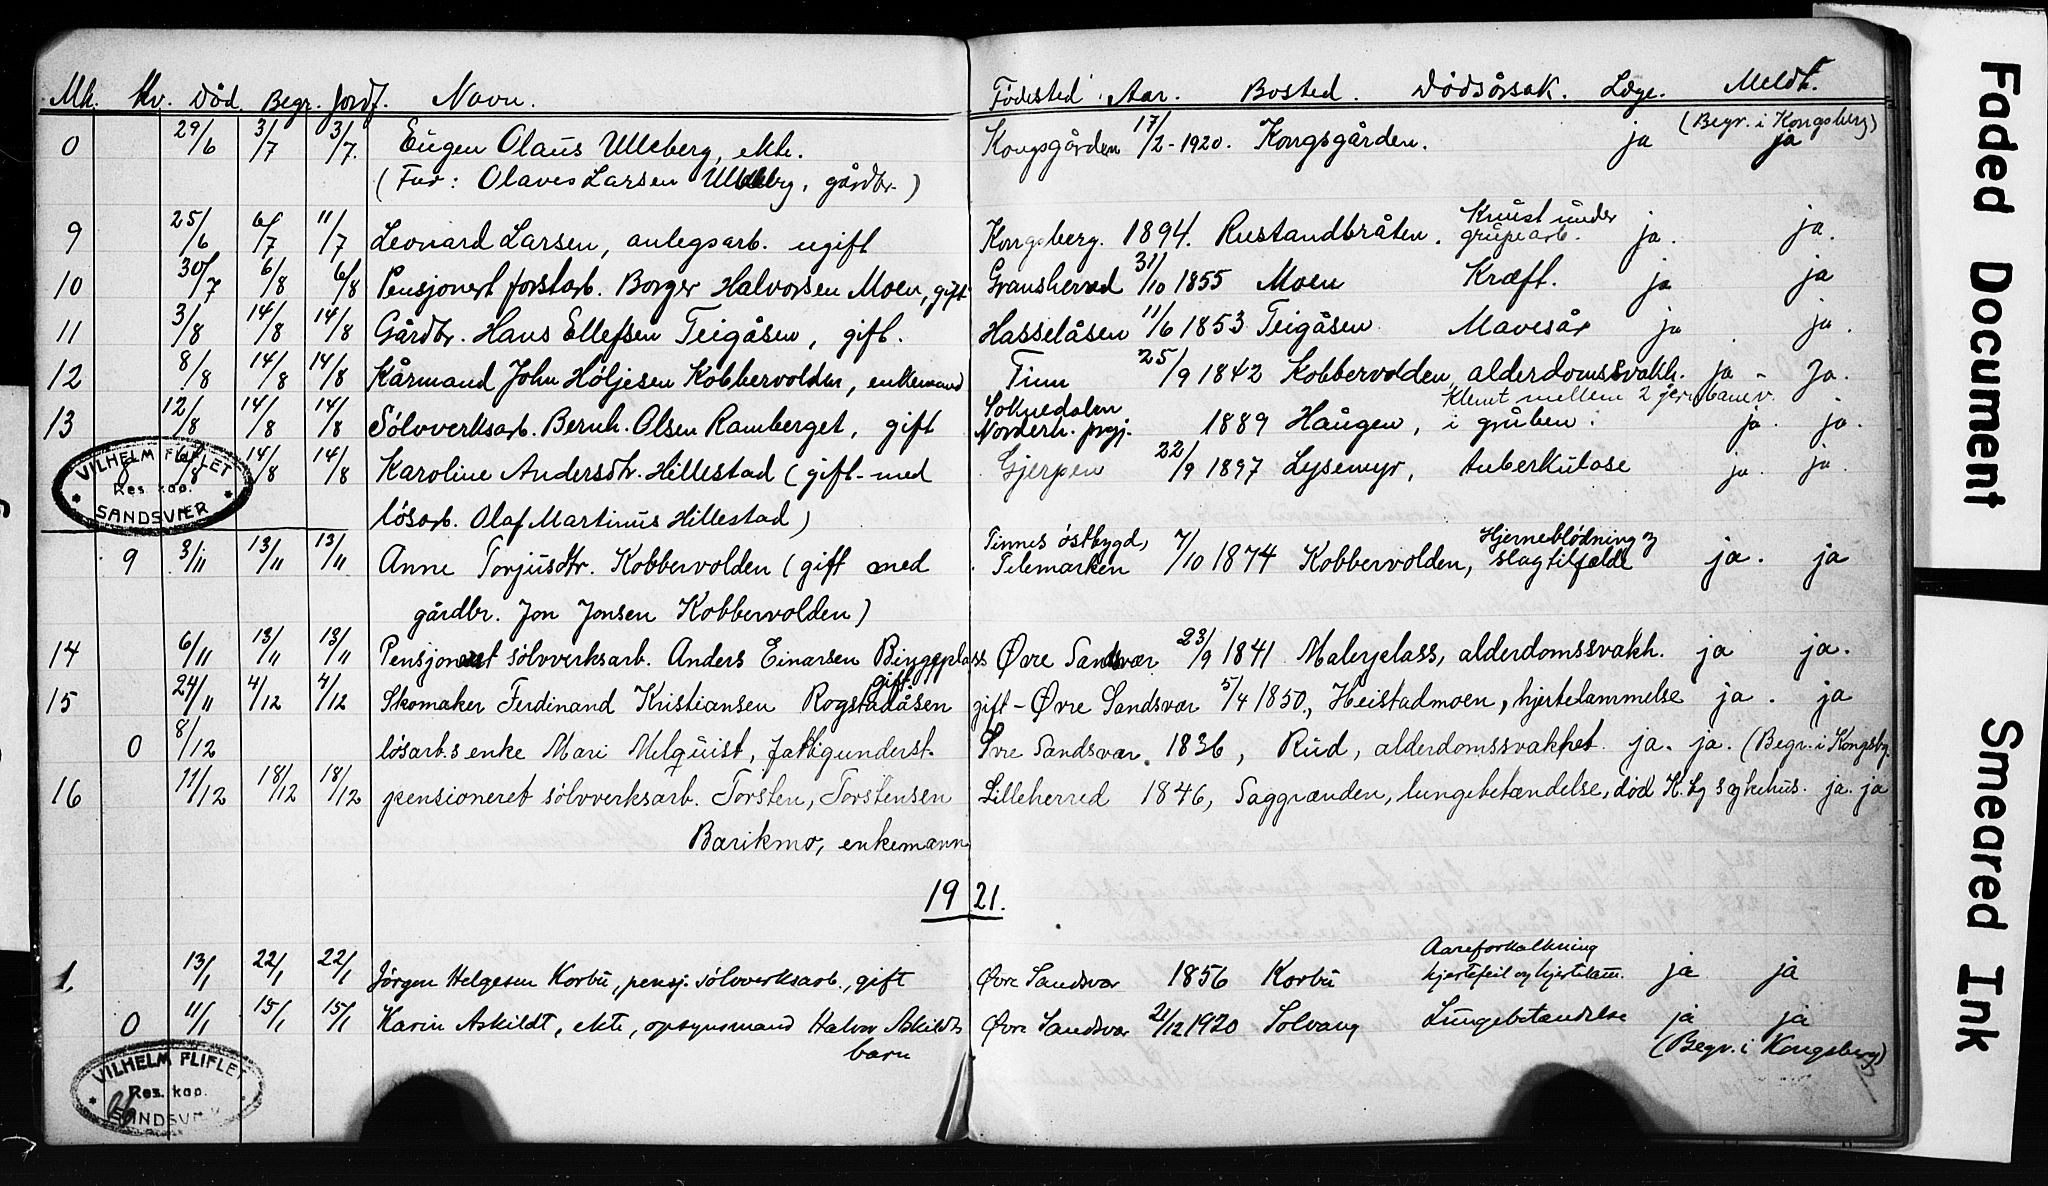 Mk. Kv. Død Begr. Jordf. Navn. Fødested Aar. Bosted. Dødsårsak. Læge. Meldt.
0 29/6 3/7 3/7. Eugen Olaus Ulleberg, ekte. Kongsgården 17/2-1920. Kongsgården. ja (Begr. i Kongsberg) ja
(Far: Olaves Larsen Ulleberg, gårdbr.)
9 25/6 6/7 11/7 Leonard Larsen, anlegsarb. ugift Kongsberg. 1894. Rustandbråten. Knust under grubearb. ja. ja.
10 30/7 6/8 6/8 Pensjonert forstarb. Borger Halvorsen Moen, gift Gransherred 31/10 1855 Moen Kræft. ja ja
11 3/8 14/8 14/8 Gårdbr. Hans Ellefsen Teigåsen, gift. Hasselåsen 11/6 1853 Teigåsen Mavesår ja ja.
12 8/8 14/8 14/8 Kårmand John Høljesen Kobbervolden, enkemand Tinn 25/9 1842 Kobbervolden, alderdomssvakh. ja - Ja.
13 12/8 14/8 14/8 Sølvverksarb. Bernh. Olsen Ramberget, gift Soknedalen Norderh. prgj. 1889 Haugen, Klemt mellem 2 jernbanev. i gruben. ja. ja.
8 6/8 14/8 14/8 Karoline Andersdtr. Hillestad (gift med Gjerpen 22/9 1897 Lysemyr, Tuberkulose ja. ja.
VILHELM FLIFLET
Res. kap.
SANDSVÆR
løsarb. Olaf Martinus Hillestad)
9 3/11 13/11 13/11 Anne Torjusdtr. Kobbervolden (gift med Tinnes østbygd, Telemarken 7/10 1874 Kobbervolden, Hjerneblødning og slagtilfælde ja. ja
gårdbr. Jon Jonsen Kobbervolden)
14 6/11 13/11 13/11 Pensjonert sølvverksarb. Anders Einarsen Byggeplass Øvre Sandsvær 23/9 1841 Malerplass, alderdomssvakh. ja ja.
gift
15 24/11 4/12 4/12 Skomaker Ferdinand Kristiansen Rogstadåsen gift - Øvre Sandsvær 5/4 1850., Heistadmoen, hjertelammelse ja. ja
0 8/12 løsarb.s enke Mari Melquist, fattigunderst. Øvre Sandsvær. 1836, Rud, alderdomssvakhet. ja. ja. (Begr. i Kongsbg.
16 11/12 18/12 18/12 pensioneret sølvverksarb. Torsten Torstensen Lilleherred 1846, Saggrenden, lungebetændelse, død K.bg sykehus. ja. ja
Barikmo, enkemann
1921.
1. 13/1 22/1 22/1 Jørgen Helgesen Korbu, pensj. sølvverksarb., gift Øvre Sandsvær 1856 Korbu Aareforkalkning hjertefeil og hjertelam. ja ja
0 11/1 15/1 15/1 Karin Askildt, ekte, opsynsmand Halvor Askildts Øvre Sandsvær 21/12 1920 Solvang Lungebetændelse ja ja
barn (Begr. i Kongsberg)
VILHELM FLIFLET
Res. kap.
SANDSVÆR
Faded Document
Smeared Ink